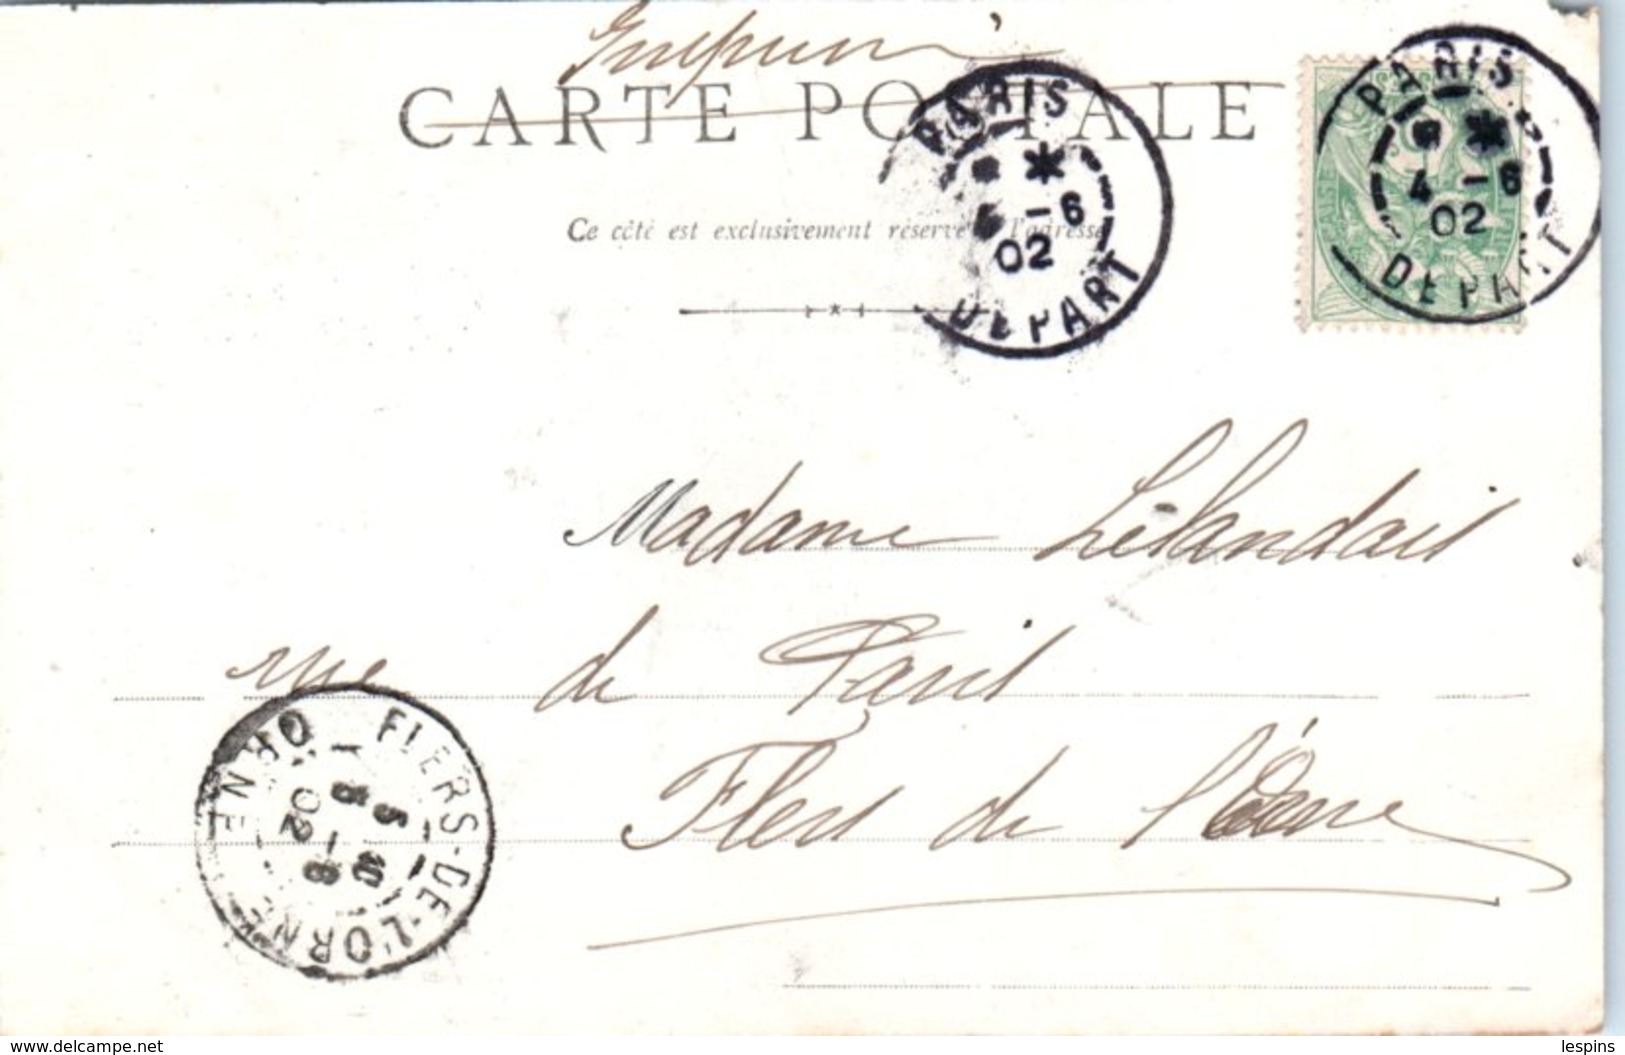 Imprimé
CARTE POSTALE
PARIS
4 -6
02
DEPART
PARIS
-6
02
DEPART
Ce côté est exclusivement réservé à l'adresse
Madame Lelandais
rue de Paris
Flers de l'Orne
FLERS-DE-L'ORNE
ORNE
5 -6
02
www.delcampe.net
lespins